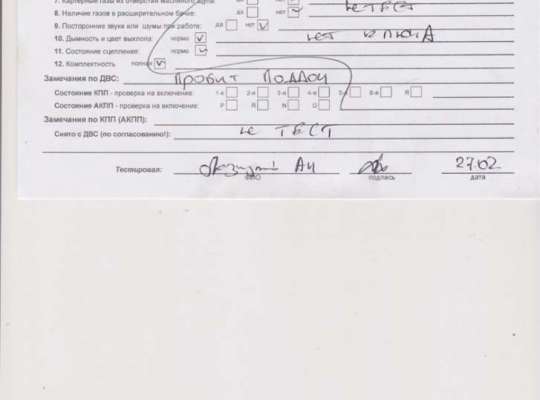 7. Картерные газы из отверстия масляного щупа: да нет не тест
8. Наличие газов в расширительном бачке: да нет
9. Посторонние звуки или шумы при работе: да нет
10. Дымность и цвет выхлопа: норма нет ключа
11. Состояние сцепления: норма
12. Комплектность полная
Замечания по ДВС: ПРОБИТ ПОДДОН
Состояние КПП - проверка на включение: 1-я 2-я 3-я 4-я 5-я 6-я R
Состояние АКПП - проверка на включение: P R N D
Замечания по КПП (АКПП):
Снято с ДВС (по согласованию!): не ТЕСТ
Тестировал: 27.02
ФИО подпись дата